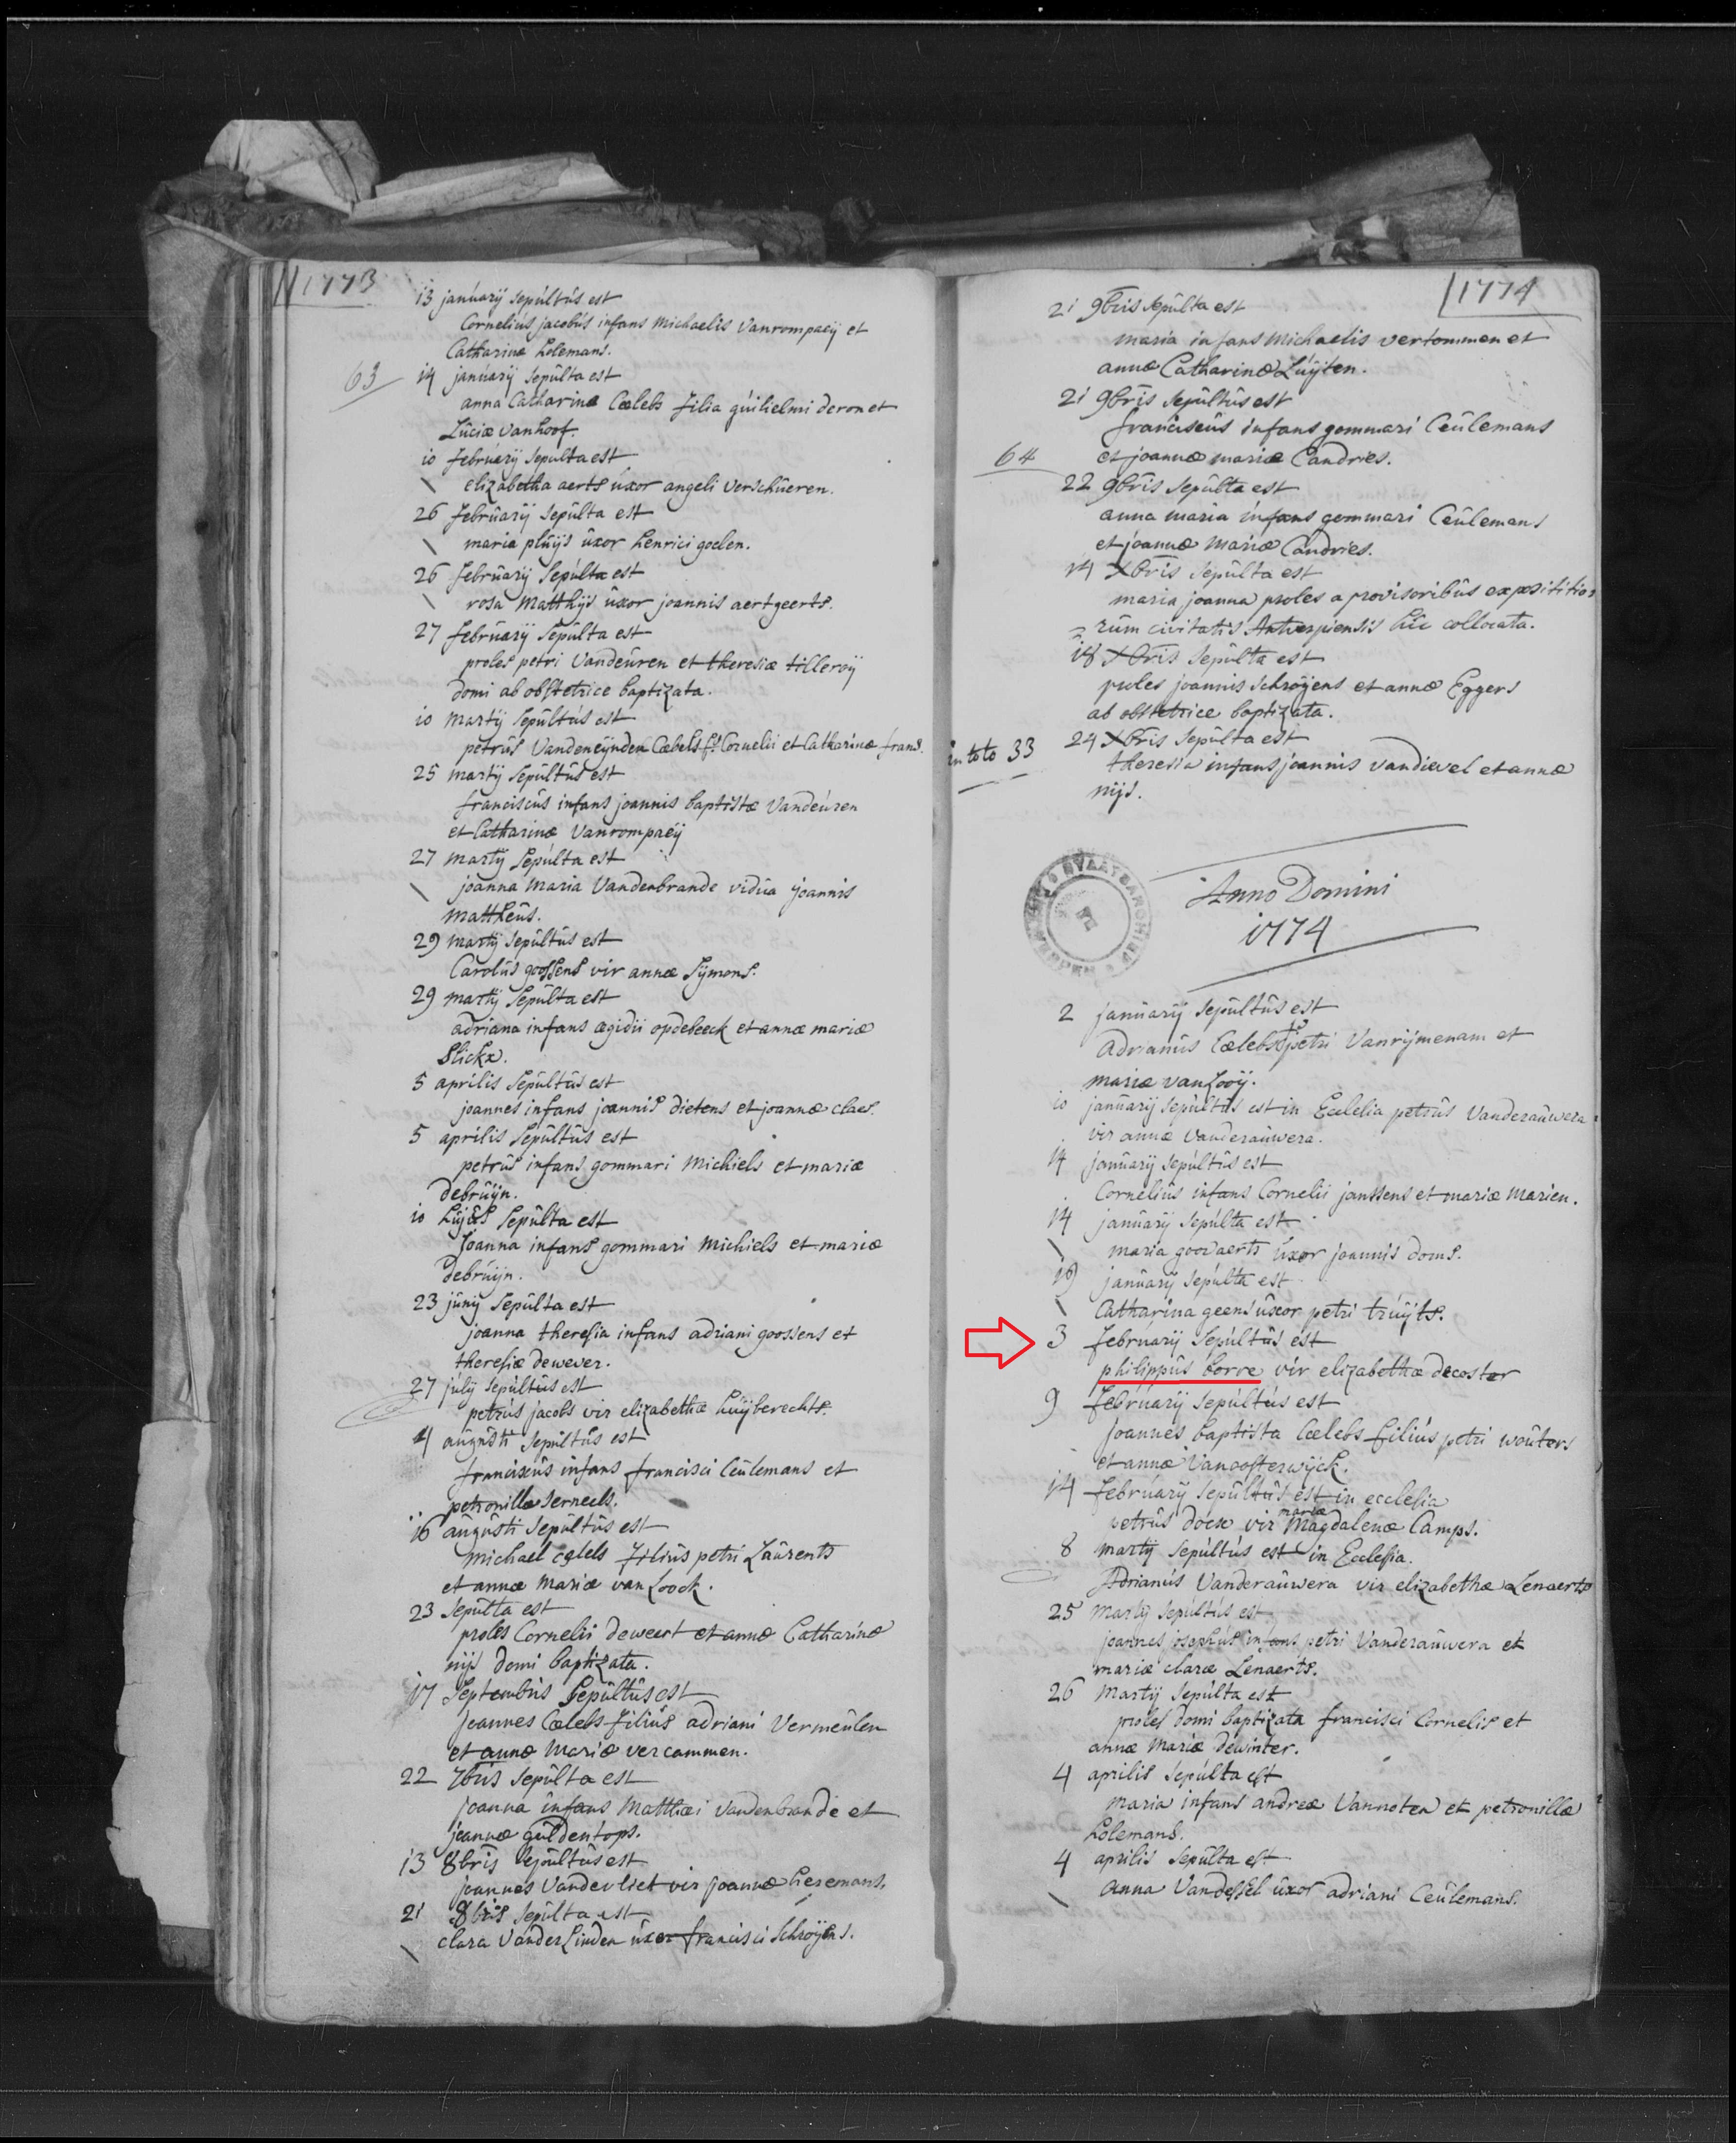 1773
13 januarij sepultus est
Cornelius jacobus infans Michaelis Vanrompaeij et
Catharinæ Holemans.
63
14 januarij sepulta est
anna Catharina Cælebs filia guilielmi deron et
Luciæ Vanhoof.
10 februarij sepulta est
elizabetha aerts uxor angeli Verschueren.
26 februarij sepulta est
maria pluijs uxor henrici goelen.
26 februarij sepulta est
rosa Matthijs uxor joannis aertgeerts.
27 februarij sepulta est
proles petri Vandeuren et theresiæ tilleroij
domi ab obstetrice baptizata.
10 martij sepultus est
petrus Vandeneijnden Cælebs fs Cornelii et Catharinæ frans.
25 martij sepultus est
franciscus infans joannis baptistæ Vandeuren
et Catharinæ Vanrompaeij
27 martij sepulta est
joanna Maria Vandenbrande vidua joannis
Mattheus.
29 martij sepultus est
Carolus goossens vir annæ Sijmons.
29 martij sepulta est
adriana infans ægidii opdebeeck et annæ mariæ
Slickx.
5 aprilis sepultus est
joannes infans joannis dietens et joannæ claes.
5 aprilis sepultus est
petrus infans gommari Michiels et mariæ
debruijn.
10 hujus sepulta est
Joanna infans gommari Michiels et mariæ
debruijn.
23 junij sepulta est
joanna theresia infans adriani goossens et
theresiæ dewever.
27 julij sepultus est
petrus jacobs vir elizabethæ huijberechts.
4 augusti sepultus est
franciscus infans francisci Ceulemans et
petronillæ serneels.
16 augusti sepultus est
Michael cælebs filius petri Laurents
et annæ Mariæ van Loock.
23 sepulta est
proles Cornelii deweert et annæ Catharinæ
nijs domi baptizata.
17 Septembris sepultus est
Joannes Cælebs filius adriani Vermeulen
et annæ Mariæ vercammen.
22 7bris sepulta est
joanna infans Matthæi Vandenbrande et
joannæ guldentops.
13 8bris sepultus est
joannes Vandevliet vir joannæ heremans.
21 8bris sepulta est
clara VanderLinden uxor francisci Schroijens.
1774
21 9bris sepulta est
maria infans Michaelis vertommen et
annæ Catharinæ Luijten.
21 9bris sepultus est
franciscus infans gommari Ceulemans
64
et joannæ mariæ Candries.
22 9bris sepulta est
anna maria infans gommari Ceulemans
et joannæ Mariæ Candries.
14 Xbris sepulta est
maria joanna proles a provisoribus expositio
rum civitatis Antverpiensis hic collocata.
18 Xbris sepulta est
proles joannis Schroijens et annæ Eggers
ab obstetrice baptizata.
in toto 33
24 Xbris sepulta est
theresia infans joannis vandievel et annæ
nijs.
Anno Domini
1774
2 januarij sepultus est
Adrianus Cælebs fs petri Vanrijmenam et
mariæ vanLooij.
10 januarij sepultus est in Ecclesia petrus Vanderauwera
vir annæ Vanderauwera.
14 januarij sepultus est
Cornelius infans Cornelii janssens et mariæ Marien.
14 januarij sepulta est
maria goovaerts uxor joannis doms.
19 januarij sepulta est
Catharina geens uxor petri truijts.
3 februarij sepultus est
philippus borre vir elizabethæ decoster
9 februarij sepultus est
Joannes baptista Cælebs filius petri wouters
et annæ Vanoosterwijck.
14 februarij sepultus est in ecclesia
petrus docx vir mariæ Magdalenæ Camps.
8 martij sepultus est in Ecclesia.
Adrianus Vanderauwera vir elizabethæ Lenaerts
25 martij sepultus est
joannes josephus infans petri Vanderauwera et
mariæ claræ Lenaerts.
26 Martij sepulta est
proles domi baptizata francisci Cornelis et
annæ Mariæ dewinter.
4 aprilis sepulta est
maria infans andreæ Vannoten et petronillæ
holemans.
4 aprilis sepulta est
anna Vandessel uxor adriani Ceulemans.